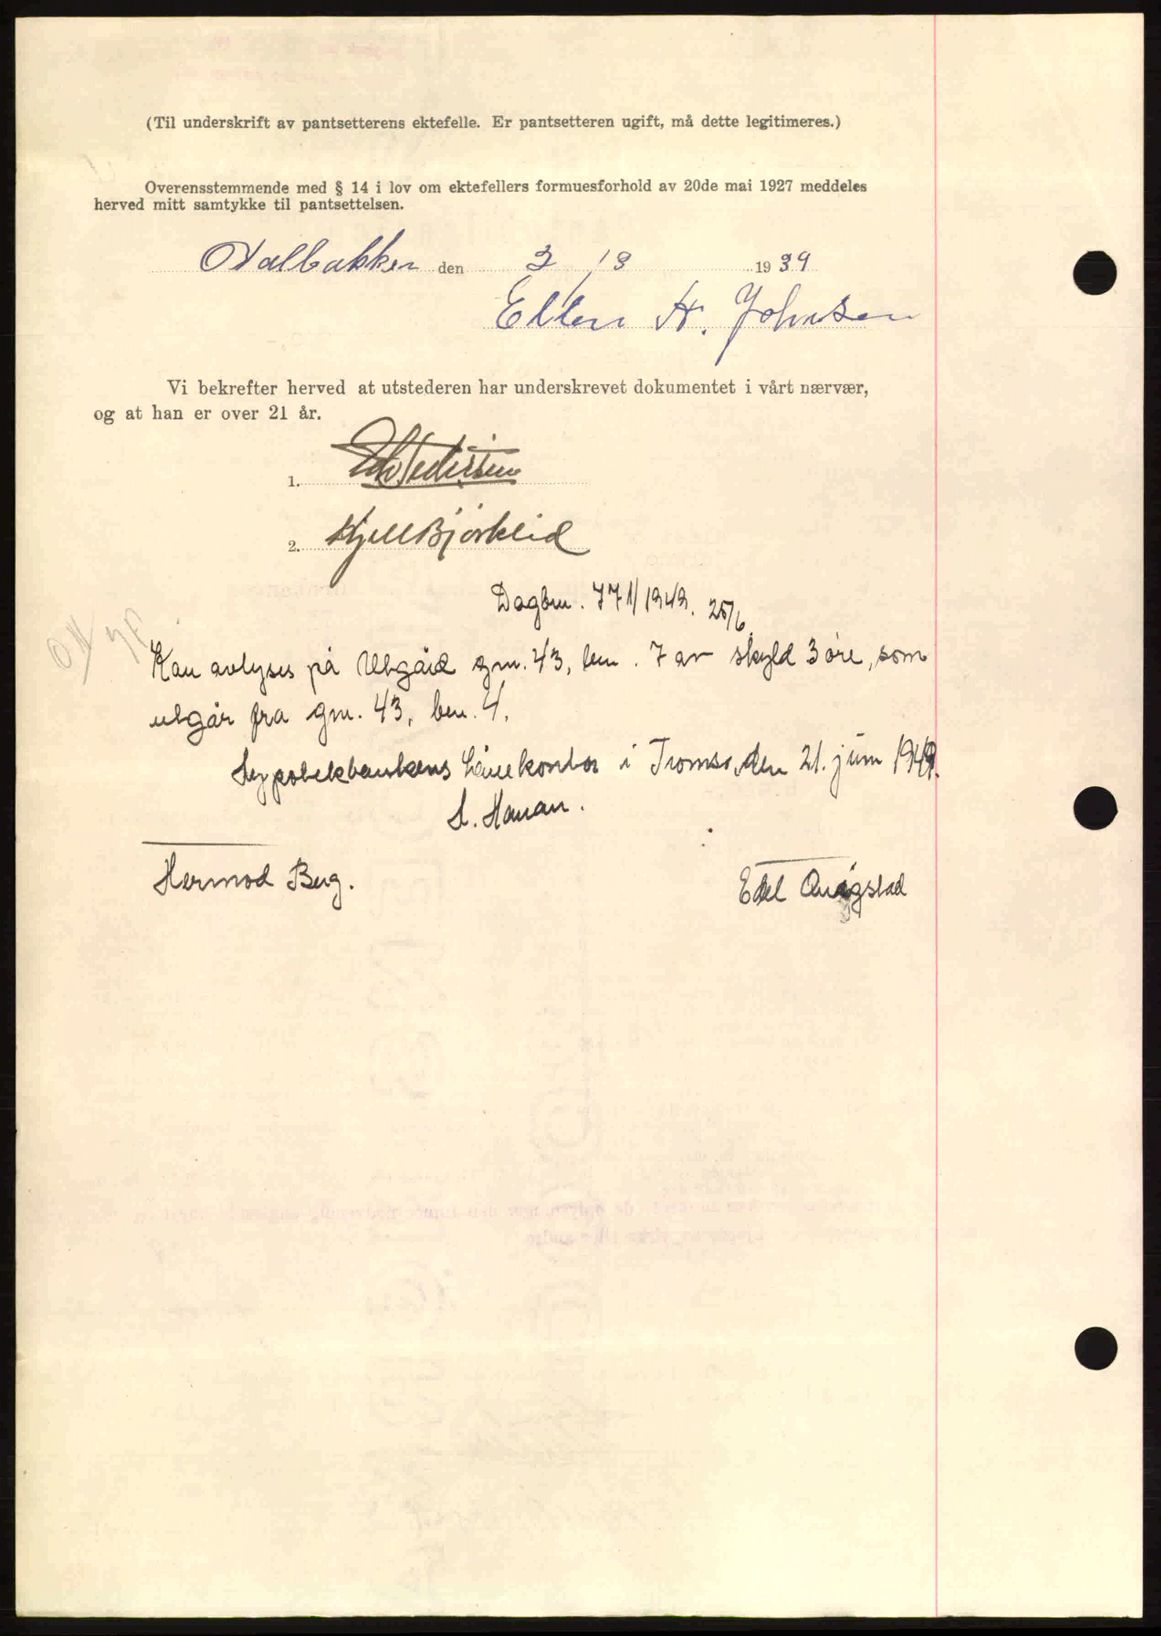 (Til underskrift av pantsetterens ektefelle. Er pantsetteren ugift, må dette legitimeres.)
Overensstemmende med § 14 i lov om ektefellers formuesforhold av 20de mai 1927 meddeles
herved mitt samtykke til pantsettelsen.
den 3/3 1939
Ellen H. Johnsen
Vi bekrefter herved at utstederen har underskrevet dokumentet i vårt nærvær,
og at han er over 21 år.
1. Pedersen
2. Kjell Bjørklid
Dagbnr. 771/1949. 25/6
Kan avlyses på Utgård gnr. 43, bnr. 7 av skyld 3 øre, som
utgår fra gnr. 43, bnr. 4.
Hypotekbankens Lånekontor i Tromsø, den 21. juni 1949.
L. Hanan.
Hermod Berg.
Edel Quigstad